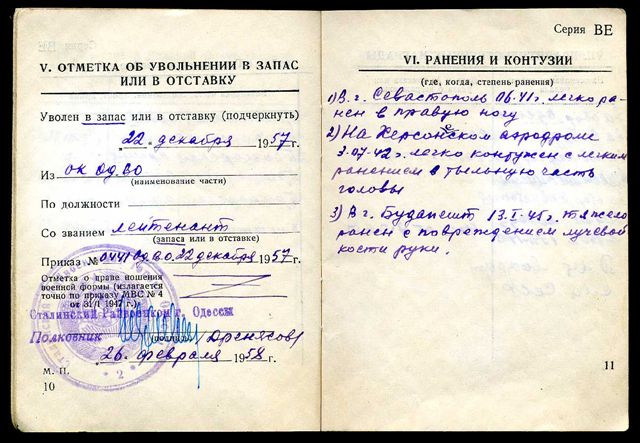 V. ОТМЕТКА ОБ УВОЛЬНЕНИИ В ЗАПАС
ИЛИ В ОТСТАВКУ
Уволен в запас или в отставку (подчеркнуть)
22 декабря 1957 г.
Из ОК Од.ВО
(наименование части)
По должности
Со званием лейтенант
(запаса или в отставке)
Приказ № 0441 Од.ВО. 22 декабря 1957 г.
Отметка о праве ношения
военной формы (излагается
точно по приказу МВС № 4
от 31/I 1947 г.)
Сталинский Райвоенком г. Одессы
Полковник
(подпись)
26 февраля 1958 г.
М. П.
10
Серия ВЕ
VI. РАНЕНИЯ И КОНТУЗИИ
(где, когда, степень ранения)
1) В г. Севастополь 06.41 г. легко ра-
нен в правую ногу
2) На Херсонском аэродроме
3.07.42 г. легко контужен с легким
ранением в тыльную часть
головы
3) В г. Будапешт 13.I.45 г. тяжело
ранен с повреждением лучевой
кости руки.
11